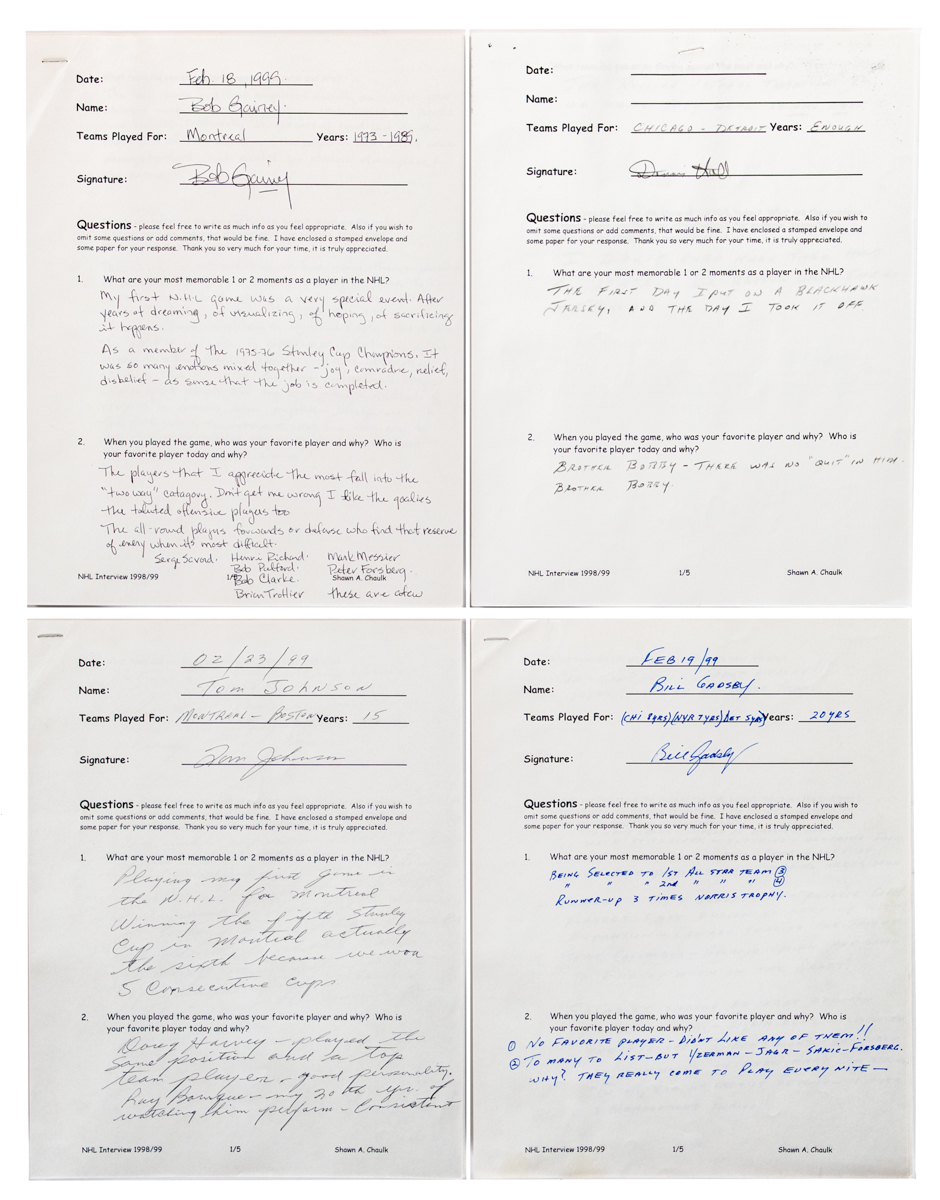 Date: Feb. 18, 1999.
Name: Bob Gainey.
Teams Played For: Montreal Years: 1973-1989.
Signature: Bob Gainey
Questions - please feel free to write as much info as you feel appropriate. Also if you wish to
omit some questions or add comments, that would be fine. I have enclosed a stamped envelope and
some paper for your response. Thank you so very much for your time, it is truly appreciated.
1. What are your most memorable 1 or 2 moments as a player in the NHL?
My first N.H.L game was a very special event. After
years of dreaming, of visualizing, of hoping, of sacrificing
it happens.
As a member of the 1975-76 Stanley Cup Champions. It
was so many emotions mixed together - joy, comradrie, relief,
disbelief - as sense that the job is completed.
2. When you played the game, who was your favorite player and why? Who is
your favorite player today and why?
The players that I appreciate the most fall into the
"two way" catagory. Don't get me wrong I like the goalies
the talented offensive players too
The all-round players forwards or defense who find that reserve
of energy when it's most difficult.
Serge Savard. Henri Richard. Mark Messier
Bob Pulford. Peter Forsberg.
NHL Interview 1998/99 1/5 Bob Clarke. Shawn A. Chaulk
Brian Trottier these are a few
Date:
Name:
Teams Played For: CHICAGO - DETROIT Years: ENOUGH
Signature: Dennis Hull
Questions - please feel free to write as much info as you feel appropriate. Also if you wish to
omit some questions or add comments, that would be fine. I have enclosed a stamped envelope and
some paper for your response. Thank you so very much for your time, it is truly appreciated.
1. What are your most memorable 1 or 2 moments as a player in the NHL?
THE FIRST DAY I PUT ON A BLACKHAWK
JERSEY, AND THE DAY I TOOK IT OFF.
2. When you played the game, who was your favorite player and why? Who is
your favorite player today and why?
BROTHER BOBBY - THERE WAS NO "QUIT" IN HIM.
BROTHER BOBBY.
NHL Interview 1998/99 1/5 Shawn A. Chaulk
Date: 02/23/99
Name: TOM JOHNSON
Teams Played For: MONTREAL - BOSTON Years: 15
Signature: Tom Johnson
Questions - please feel free to write as much info as you feel appropriate. Also if you wish to
omit some questions or add comments, that would be fine. I have enclosed a stamped envelope and
some paper for your response. Thank you so very much for your time, it is truly appreciated.
1. What are your most memorable 1 or 2 moments as a player in the NHL?
Playing my first game in
the N.H.L. for Montreal
Winning the fifth Stanley
Cup in Montreal actually
the sixth because we won
5 Consecutive Cups
2. When you played the game, who was your favorite player and why? Who is
your favorite player today and why?
Doug Harvey - played the
same position and a top
team player - good personality.
Ray Bourque - my 20th yr. of
watching him perform - Consistent
NHL Interview 1998/99 1/5 Shawn A. Chaulk
Date: FEB 19/99
Name: BILL GADSBY.
Teams Played For: (CHI 8YRS)(NYR 7YRS)(DET 5YRS) Years: 20YRS
Signature: Bill Gadsby
Questions - please feel free to write as much info as you feel appropriate. Also if you wish to
omit some questions or add comments, that would be fine. I have enclosed a stamped envelope and
some paper for your response. Thank you so very much for your time, it is truly appreciated.
1. What are your most memorable 1 or 2 moments as a player in the NHL?
BEING SELECTED TO 1ST ALL STAR TEAM ③
" " " 2nd " " " ④
RUNNER-UP 3 TIMES NORRIS TROPHY.
2. When you played the game, who was your favorite player and why? Who is
your favorite player today and why?
① NO FAVORITE PLAYER - DIDN'T LIKE ANY OF THEM!!
② TO MANY TO LIST - BUT YZERMAN - JAGR - SAKIC - FORSBERG.
WHY? THEY REALLY COME TO PLAY EVERY NITE -
NHL Interview 1998/99 1/5 Shawn A. Chaulk